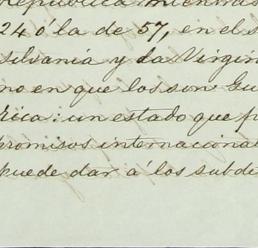 república mientras
24 ó la de 57, en el s
silvania y la Virgin
no en que los son Gu
Rica: un estado que p
promisos internacional
puede dar á los subdi